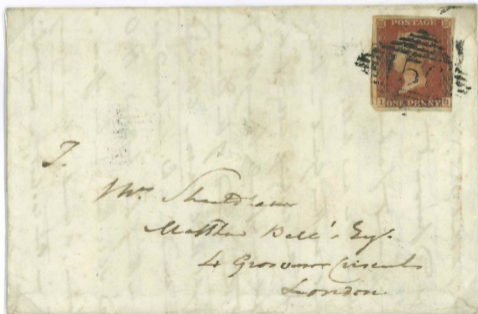 POSTAGE
ONE PENNY
Mrs
Matthew Bell's Esq.
4 Grosvenor Crescent
London